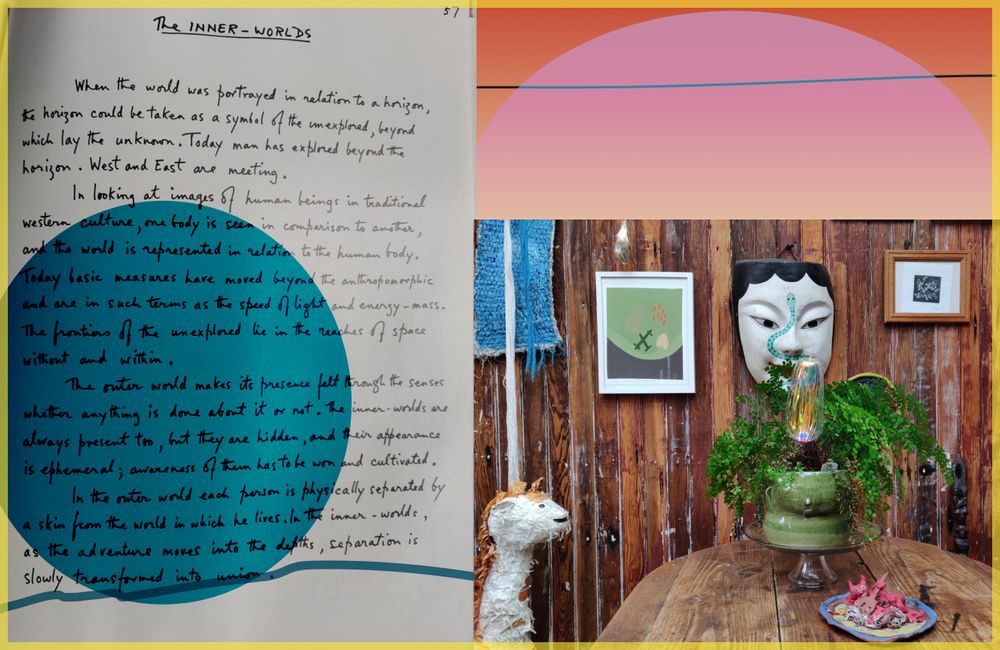 57
The INNER-WORLDS
When the world was portrayed in relation to a horizon,
the horizon could be taken as a symbol of the unexplored, beyond
which lay the unknown. Today man has explored beyond the
horizon. West and East are meeting.
In looking at images of human beings in traditional
western culture, one body is seen in comparison to another,
and the world is represented in relation to the human body.
Today basic measures have moved beyond the anthropomorphic
and are in such terms as the speed of light and energy-mass.
The frontiers of the unexplored lie in the reaches of space
without and within.
The outer world makes its presence felt through the senses
whether anything is done about it or not. The inner-worlds are
always present too, but they are hidden, and their appearance
is ephemeral; awareness of them has to be won and cultivated.
In the outer world each person is physically separated by
a skin from the world in which he lives. In the inner-worlds,
as the adventure moves into the depths, separation is
slowly transformed into union.